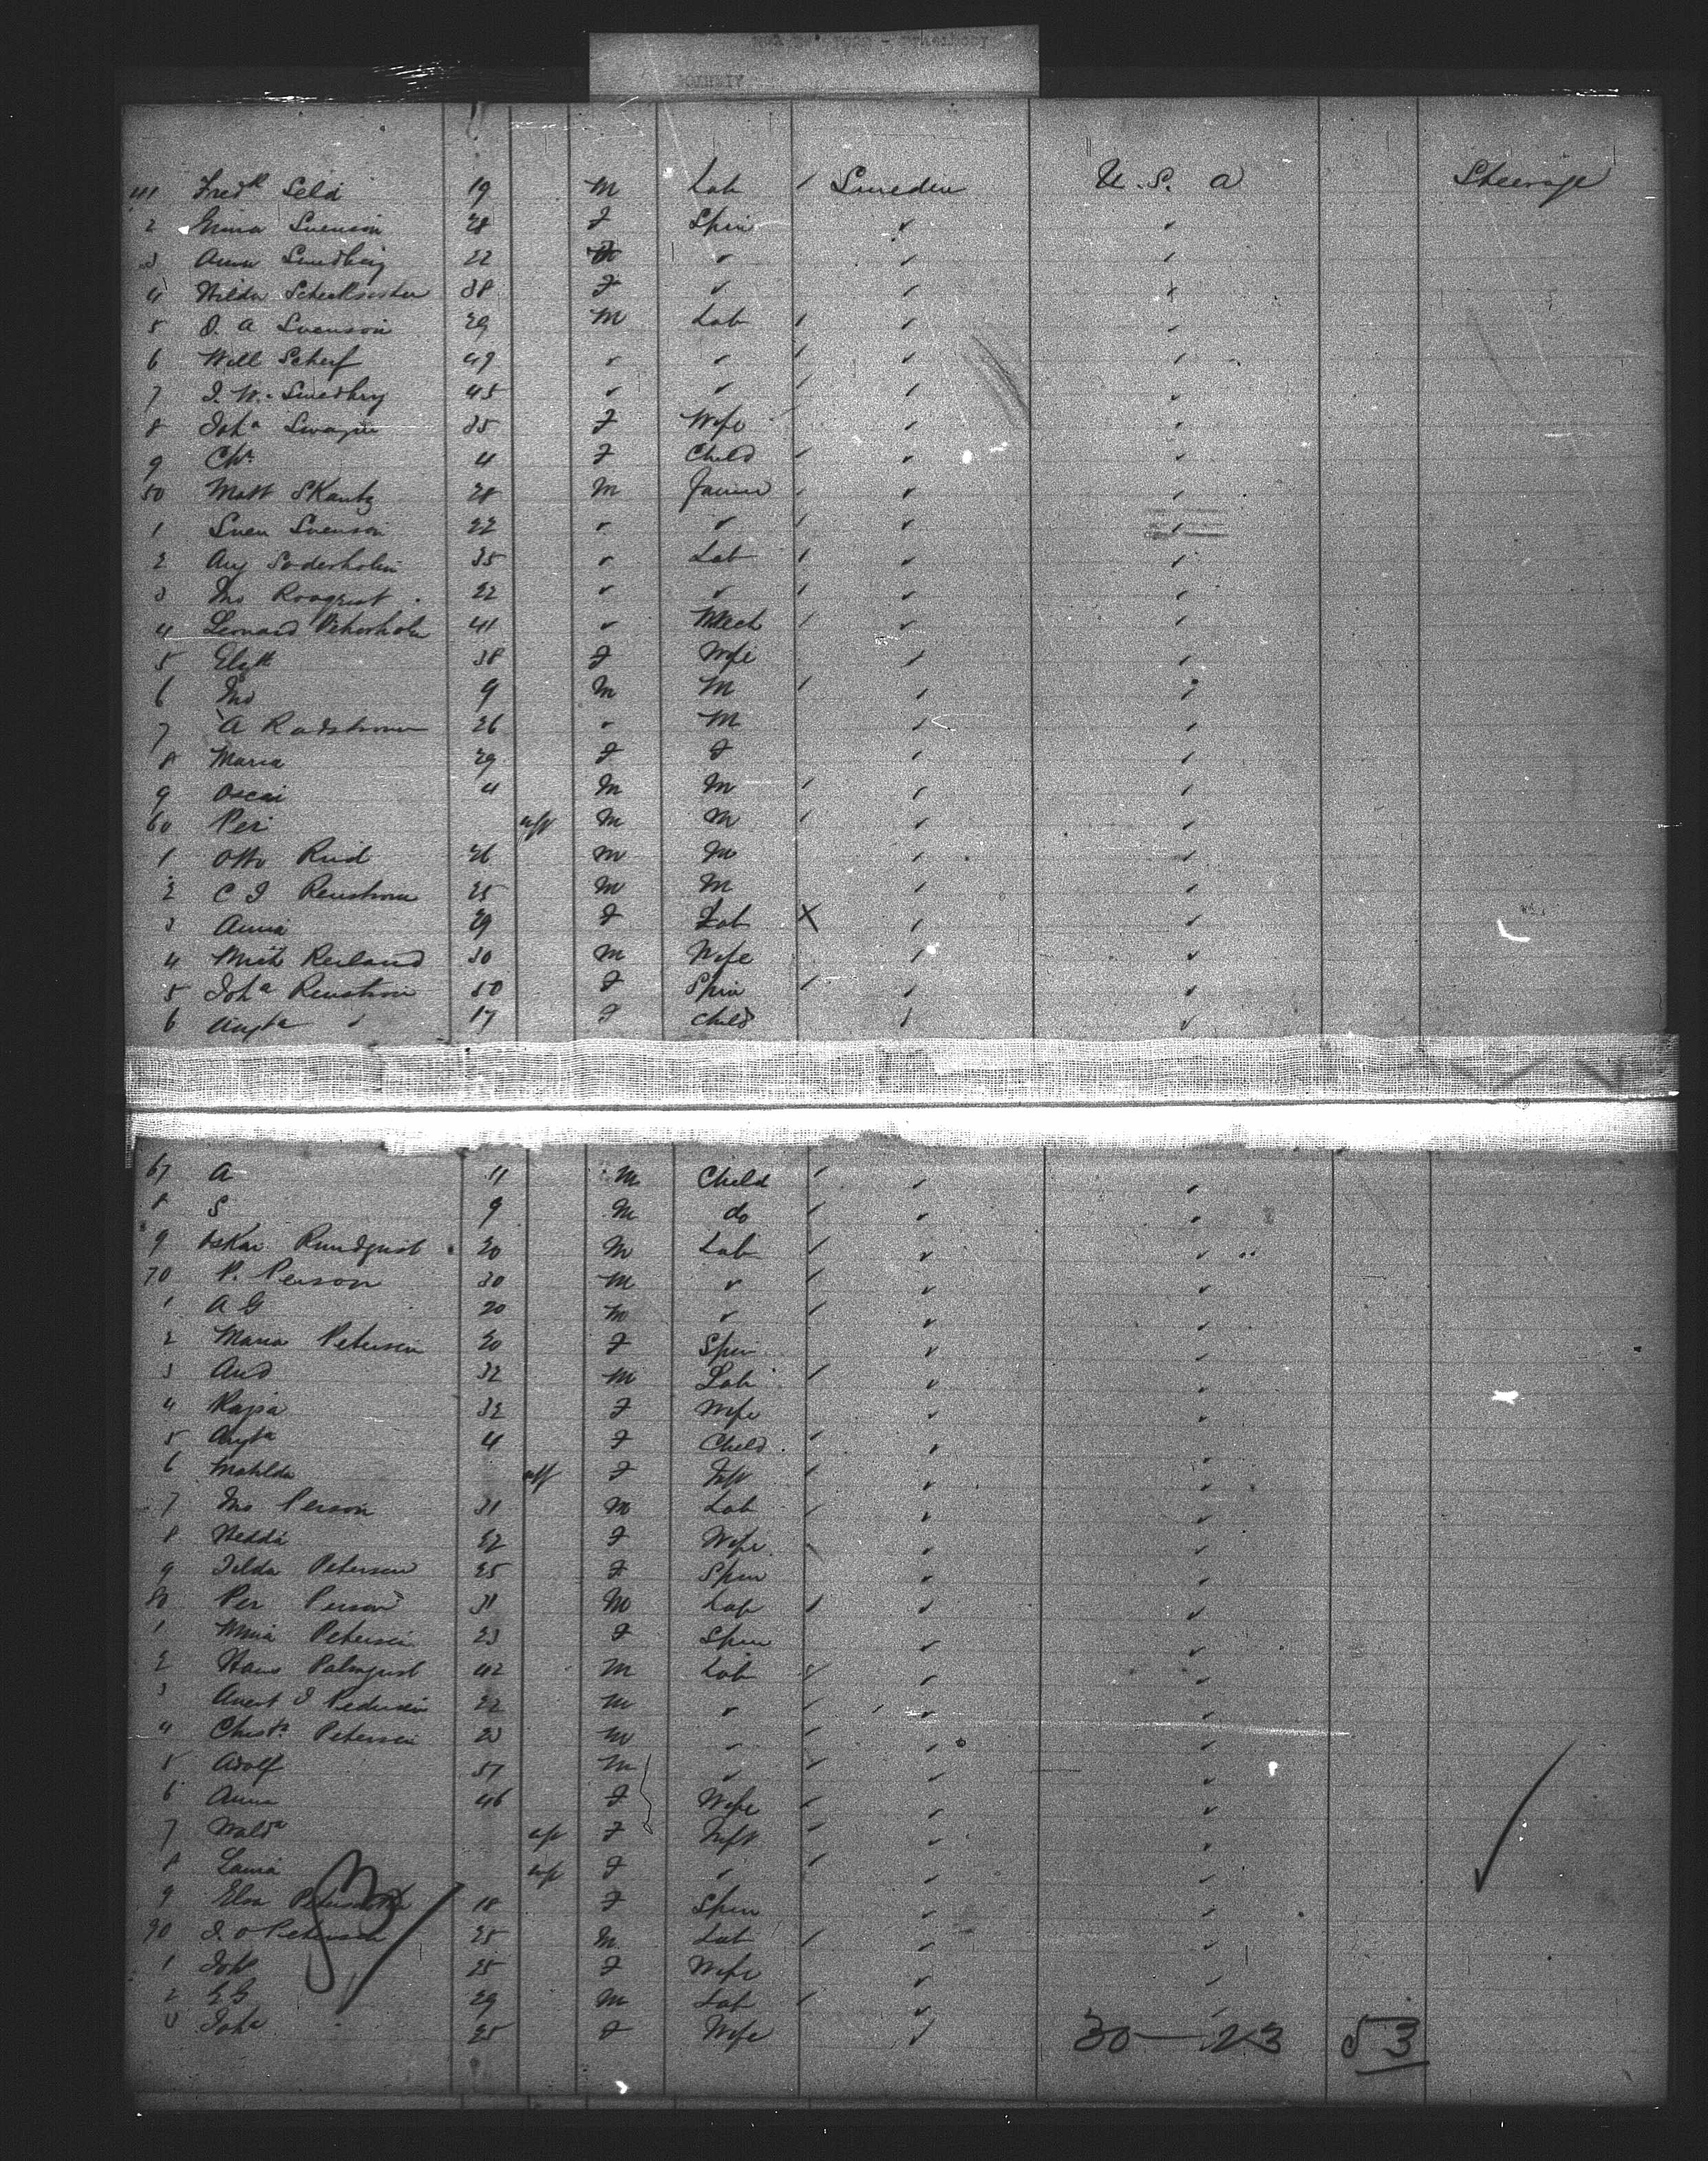 41 Fredk Seld 19 M Lab / Sweden U.S. A Steerage
2 Emma Svenson 28 F Spin ✓ ✓
3 Anna Swedberg 22 ✓ ✓ ✓
4 Hilda 38 F ✓ ✓ ✓
5 O. A Svenson 29 M Lab / ✓ ✓
6 Will Scherf 49 ✓ ✓ / ✓ ✓
7 J. W. Swedbry 45 ✓ ✓ / ✓ ✓
8 Joha 35 F Wife ✓ ✓
9 Chr 4 F Child / ✓ ✓
50 Matt Skantz 28 M / ✓ ✓
1 Sven Svenson 22 ✓ ✓ / ✓ ✓
2 Aug Soderholm 35 ✓ Lab / ✓ ✓
3 Jno Roogust 22 ✓ ✓ / ✓ ✓
4 Leonard 41 ✓ Mech / ✓ ✓
5 Elizth 38 F Wife ✓ ✓
6 Jno 9 M M / ✓ ✓
7 A Radstrom 26 ✓ M ✓ ✓
8 Maria 29 F F ✓ ✓
9 Oscar 4 M M / ✓ ✓
60 Per inf M M / ✓ ✓
1 Otto Rud 26 M M ✓ ✓
2 C J Renstrom 25 M M ✓ ✓
3 Anna 29 F Lab X ✓ ✓
4 Reiland 30 M Wife ✓ ✓
5 Joha Renstrom 50 F Spin / ✓ ✓
6 Augta ✓ 17 F Child ✓ ✓
67 A 11 M Child / ✓ ✓
8 S 9 M do / ✓ ✓
9 Oskar Rundquist 20 M Lab / ✓ ✓
70 P. Person 30 M ✓ / ✓ ✓
1 A G 20 M ✓ / ✓ ✓
2 Maria Petersen 20 F Spin ✓ ✓
3 And 32 M Lab / ✓ ✓
4 Kajsa 32 F Wife ✓ ✓
5 Augta 4 F Child / ✓ ✓
6 Mathilda inf F Inft / ✓ ✓
7 Jno Person 31 M Lab / ✓ ✓
8 Hedda 22 F Wife ✓ ✓
9 Tilda Petersen 25 F Spin ✓ ✓
80 Per Person 31 M Lab / ✓ ✓
1 Mina Petersen 23 F Spin ✓ ✓
2 Hans Palmquist 42 M Lab / ✓ ✓
3 J Pedersen 22 M ✓ / ✓ ✓
4 Christn Petersen 23 M ✓ / ✓ ✓
5 Adolf 57 M ✓ / ✓ ✓
6 Anna 46 F Wife / ✓ ✓
7 inf F Inft / ✓ ✓
8 Laura inf F ✓ / ✓ ✓
9 Elsa 18 F Spin ✓ ✓
90 J. O Petersen 25 M Lab / ✓ ✓
1 Joha 25 F Wife ✓ ✓
2 E G 29 M Lab / ✓ ✓
3 Joha 25 F Wife ✓
30 — 23 53